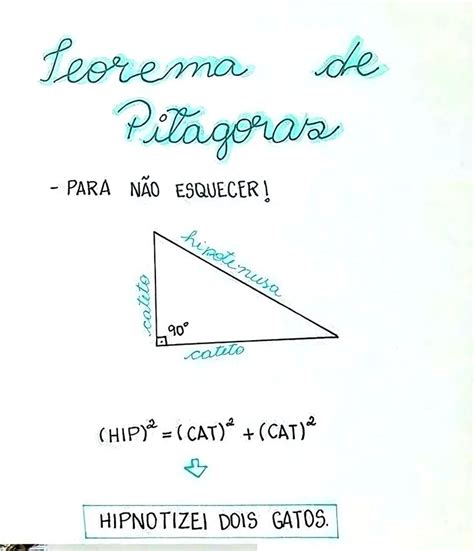 Teorema de
Pitágoras
- PARA NÃO ESQUECER!
hipotenusa
cateto
90°
cateto
(HIP)² = (CAT)² + (CAT)²
HIPNOTIZEI DOIS GATOS.